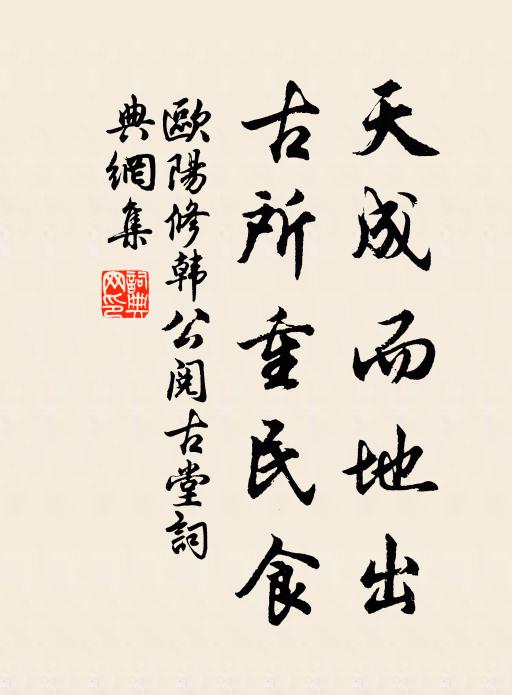 天成而地出
古所重民食
歐陽修韓公閱古堂詞
典網集
詞典網印